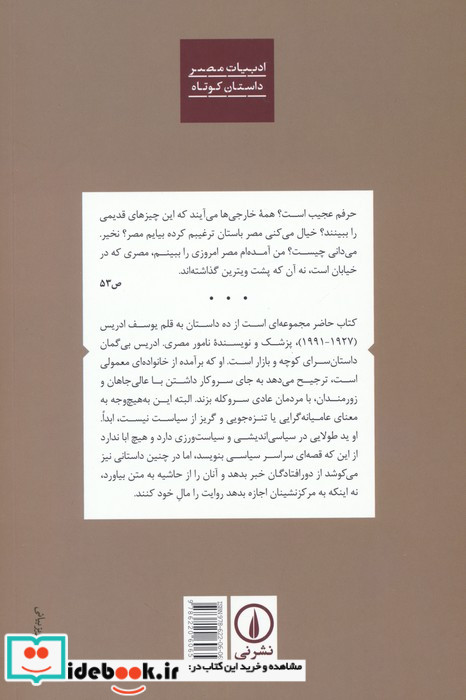 ادبیات مصر
داستان کوتاه
حرفم عجیب است؟ همهٔ خارجی‌ها می‌آیند که این چیزهای قدیمی
را ببینند؟ خیال می‌کنی مصر باستان ترغیبم کرده بیایم مصر؟ نخیر.
می‌دانی چیست؟ من آمده‌ام مصر امروزی را ببینم، مصری که در
خیابان است، نه آن که پشت ویترین گذاشته‌اند.
ص۵۳
• • •
کتاب حاضر مجموعه‌ای است از ده داستان به قلم یوسف ادریس
(۱۹۲۷-۱۹۹۱)، پزشک و نویسندهٔ نامور مصری. ادریس بی‌گمان
داستان‌سرای کوچه و بازار است. او که برآمده از خانواده‌ای معمولی
است، ترجیح می‌دهد به جای سروکار داشتن با عالی‌جاهان و
زورمندان، با مردمان عادی سروکله بزند. البته این به‌هیچ‌وجه به
معنای عامیانه‌گرایی یا تنزه‌جویی و گریز از سیاست نیست، ابداً.
او ید طولایی در سیاسی‌اندیشی و سیاست‌ورزی دارد و هیچ ابا ندارد
از این که قصه‌ای سراسر سیاسی بنویسد، اما در چنین داستانی نیز
می‌کوشد از دورافتادگان خبر بدهد و آنان را از حاشیه به متن بیاورد،
نه اینکه به مرکزنشینان اجازه بدهد روایت را مالِ خود کنند.
نشرنی
مشاهده و خرید این کتاب در:
idebook.ir